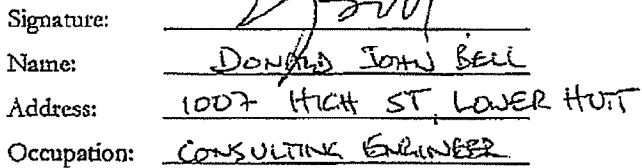 Signature:
Name: DONALD JOHN BELL
Address: 1007 HIGH ST, LOWER HUTT
Occupation: CONSULTING ENGINEER